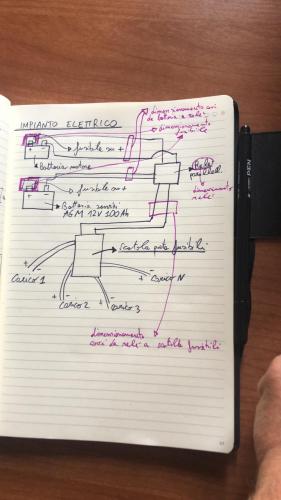 IMPIANTO ELETTRICO
dimensionamento cavi
da batteria a relè
dimensionamento
fusibile
fusibile su +
Batteria motore
Relè
parallel.
dimensionamento
relè
fusibile su +
Batteria servizi
AGM 12V 100Ah
scatola porta fusibili
+ -
Carico 1
+ -
Carico 2
+ -
Carico 3
+ -
Carico N
dimensionamento
cavi da relè a scatola fusibili
PEN